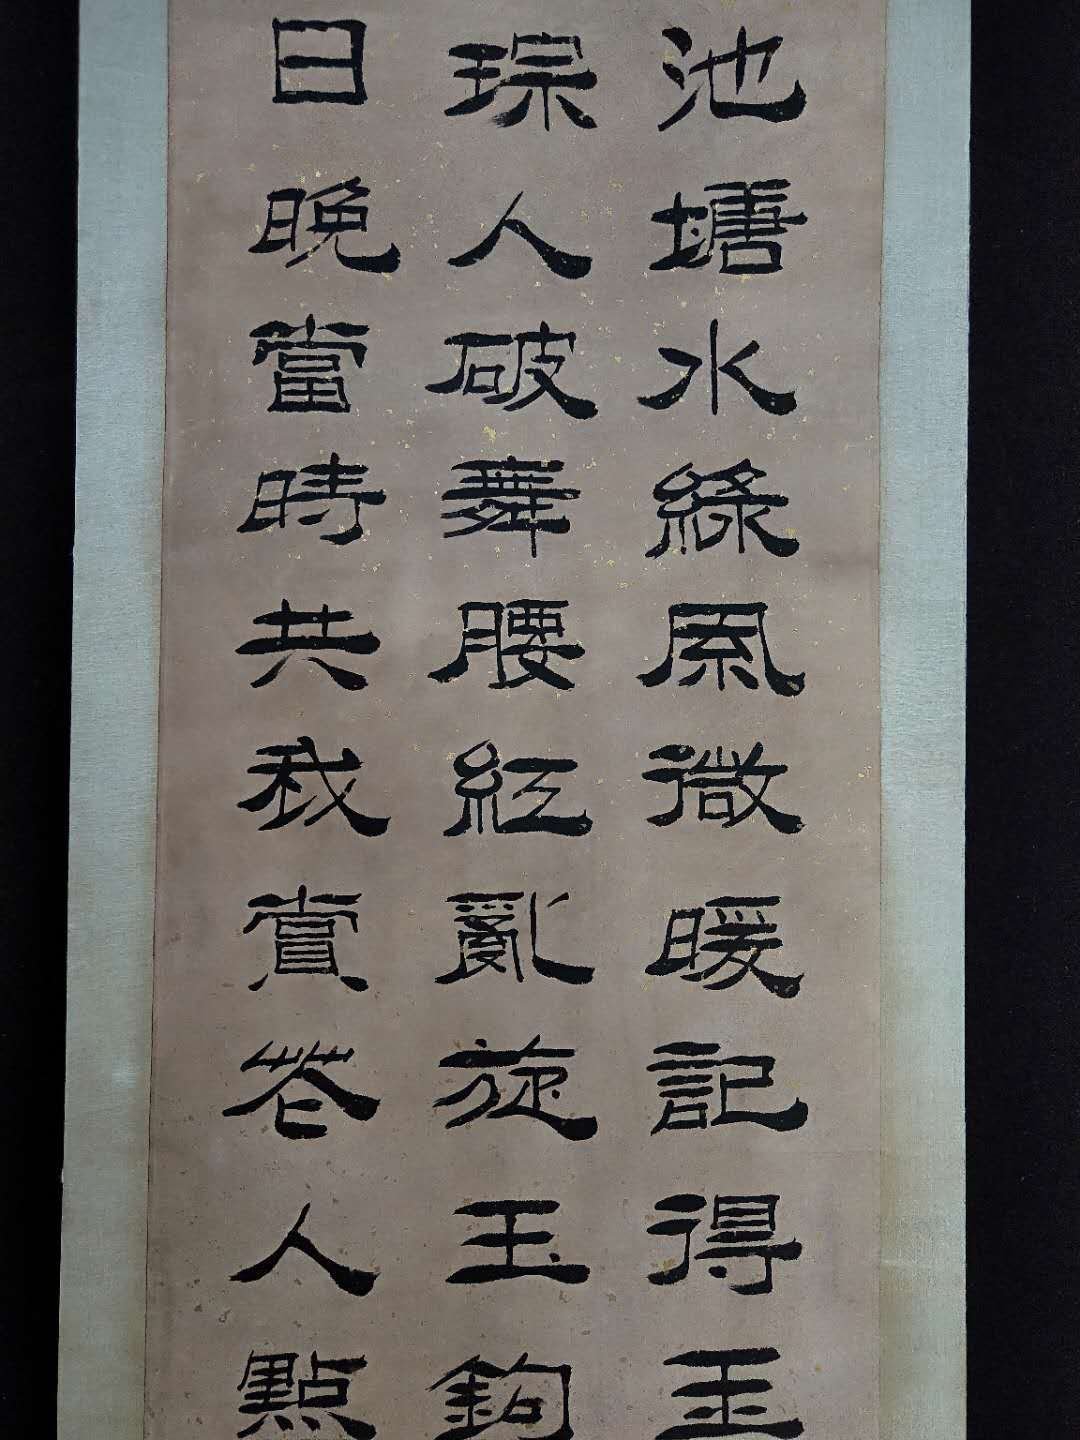 池塘水綠風微暖記得玉
琮人破舞腰紅亂旋玉鉤
日晚當時共我賞花人點